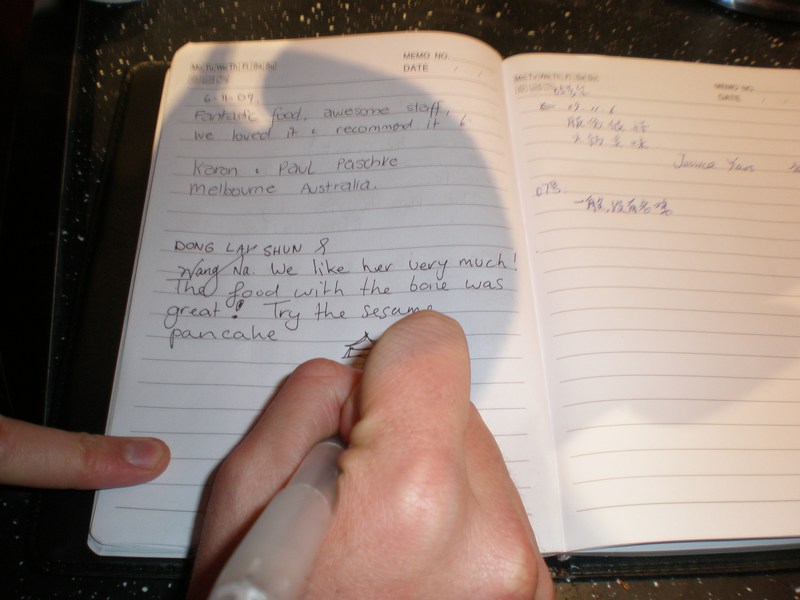 Mo Tu We Th Fr Sa Su
MEMO NO.
DATE
6-11-09.
Fantastic food, awesome staff,
We loved it & recommed it
Karon & Paul Paschke
Melbourne Australia.
DONG LAY SHUN &
Wang Na. We like her very much!
The food with the bone was
great! Try the sesame
pancake
Mo Tu We Th Fr Sa Su
MEMO NO.
DATE
09.11.6
服务很好